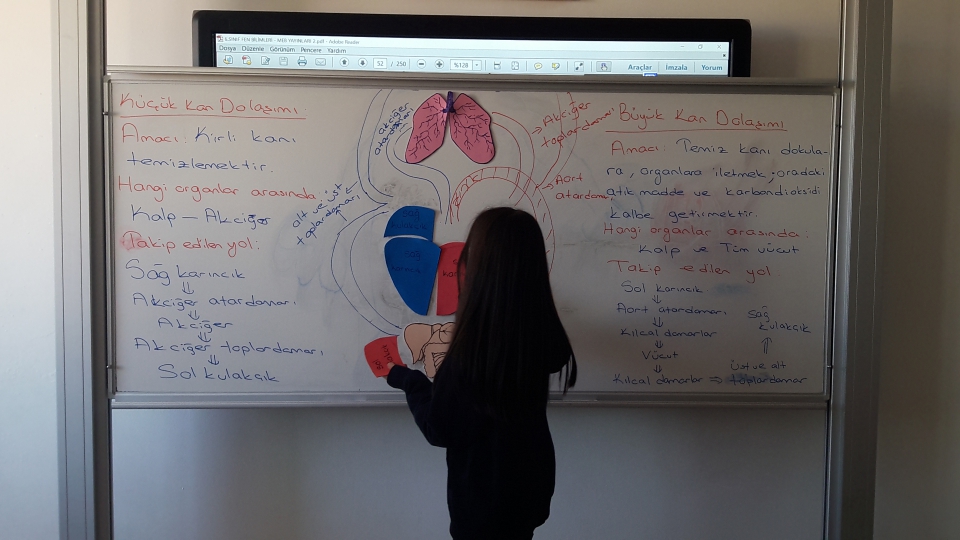 6.SINIF FEN BİLİMLERİ - MEB YAYINLARI 2.pdf - Adobe Reader
Dosya Düzenle Görünüm Pencere Yardım
52 / 250
%128
Araçlar İmzala Yorum
Küçük Kan Dolaşımı
Amacı: Kirli kanı
temizlemektir.
Hangi organlar arasında:
Kalp – Akciğer
Takip edilen yol:
Sağ karıncık
⇓
Akciğer atardamarı
⇓
Akciğer
⇓
Akciğer toplardamarı
⇓
Sol kulakçık
akciğer
atardamarı
alt ve üst
toplardamarı
Akciğer
toplardamarı
Aort
atardamarı
Sağ
Büyük Kan Dolaşımı
Amacı: Temiz kanı dokula-
ra, organlara iletmek, oradaki
atık madde ve karbandioksidi
kalbe getirmektir.
Hangi organlar arasında:
Kalp ve Tüm vücut
Takip edilen yol
Sol karıncık
↓
Aort atardamarı
↓
Kılcal damarlar
↓
Vücut
↓
Kılcal damarlar ⇒ toplardamar
Üst ve alt
⇑
Sağ
kulakçık